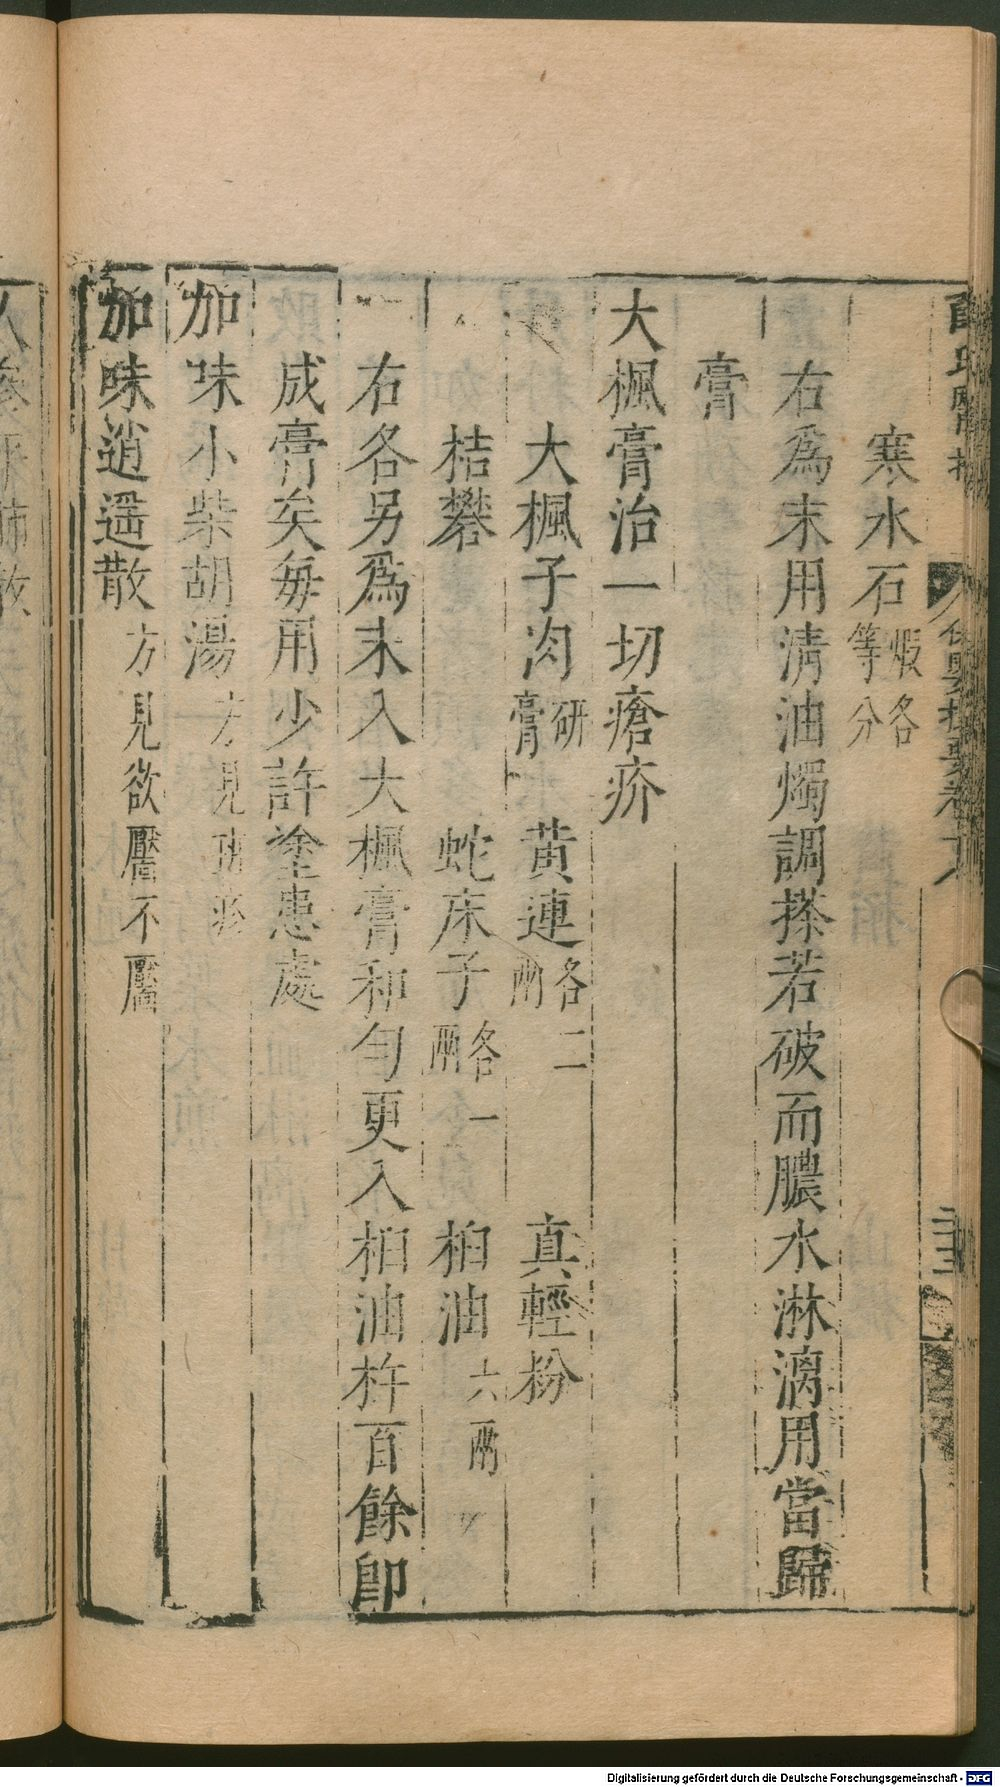 薛氏醫按
保嬰撮要卷十八
寒水石煆各等分
右爲末用淸油燭調搽若破而膿水淋漓用當歸
膏
大楓膏治一切瘡疥
大楓子肉研膏 黃連各二兩 真輕粉
桔礬 蛇床子各一兩 柏油六兩
右各另爲末入大楓膏和勻更入柏油杵百餘即
成膏矣每用少許塗患處
加味小柴胡湯方見
加味逍遥散方見欲靨不靨
Digitalisierung gefördert durch die Deutsche Forschungsgemeinschaft - DFG